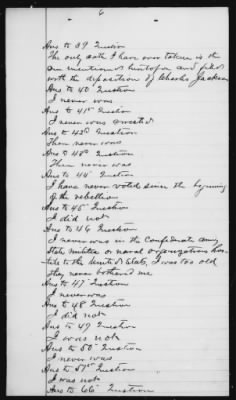 6
Ans to 39 Question
The only oath I have ever taken is the
one mentioned heretofore and filed
with the deposition of Charles Jackson
Ans to 40 Question
I never was
Ans to 41st Question
I never was arrested
Ans to 42d Question
There never was
Ans to 43d Question
There never was
Ans to 44 Question
I have never voted since the beginning
of the rebellion
Ans to 45 Question
I did not
Ans to 46 Question
I never was in the Confederate army
State militia or naval organizations hos-
tile to the United States, I was too old
they never bothered me
Ans to 47 Question
I never was
Ans to 48 Question
I did not
Ans to 49 Question
I was not
Ans to 50 Question
I never was
Ans to 51st Question
I was not
Ans to 66 Question